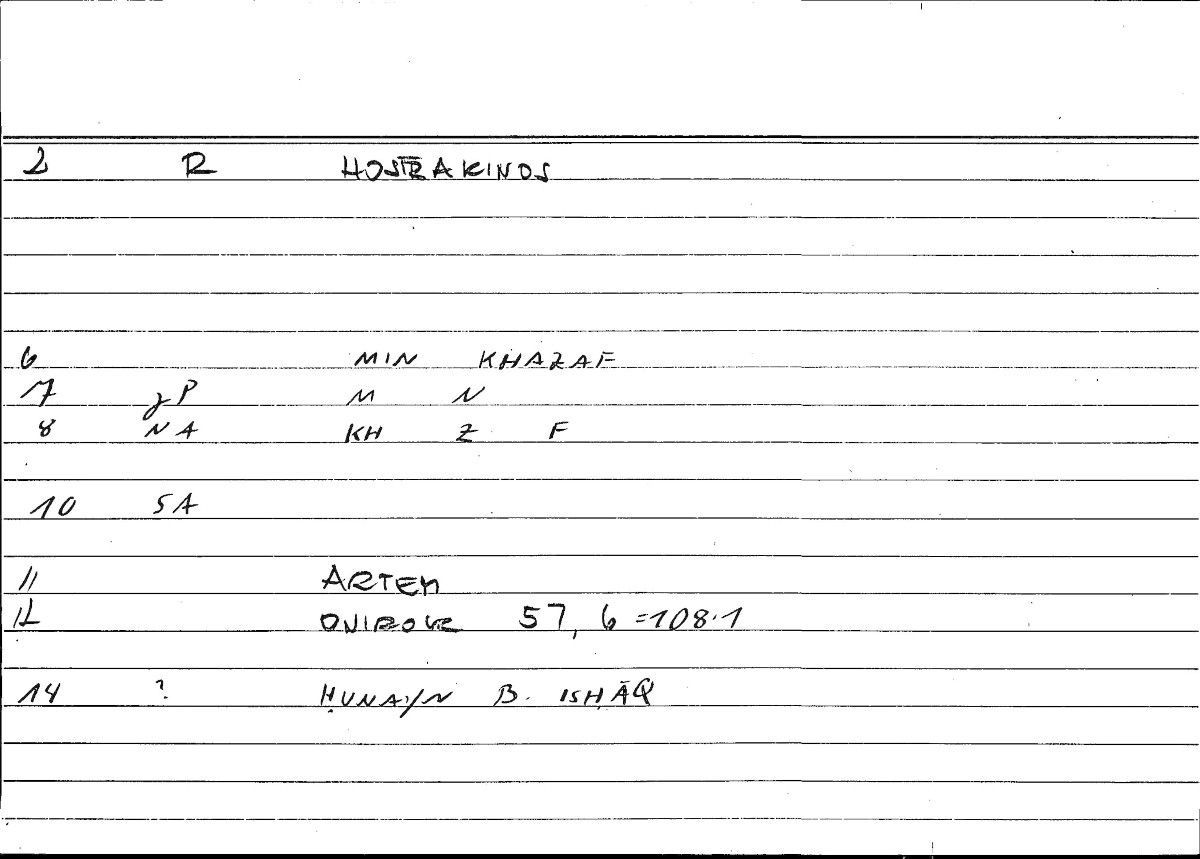 2 R HOSTRAKINOS
6 MIN KHAZAF
7 gP M N
8 NA KH Z F
10 SA
11 ARTEM
12 ONIROKR 57, 6 = 108.1
14 ? ḤUNAYN B. ISḤĀQ